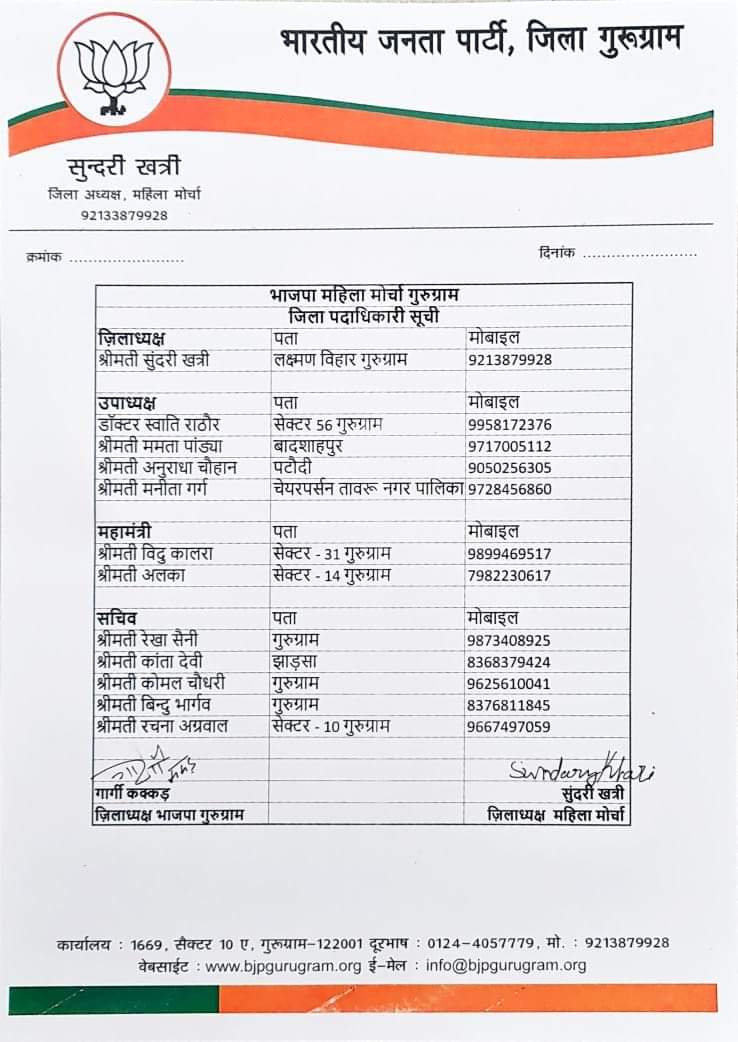 भारतीय जनता पार्टी, जिला गुरूग्राम
सुन्दरी खत्री
जिला अध्यक्ष, महिला मोर्चा
92133879928
क्रमांक ........................
दिनांक ........................
भाजपा महिला मोर्चा गुरुग्राम
जिला पदाधिकारी सूची
ज़िलाध्यक्ष पता मोबाइल
श्रीमती सुंदरी खत्री लक्ष्मण विहार गुरुग्राम 9213879928
उपाध्यक्ष पता मोबाइल
डॉक्टर स्वाति राठौर सेक्टर 56 गुरुग्राम 9958172376
श्रीमती ममता पांड्या बादशाहपुर 9717005112
श्रीमती अनुराधा चौहान पटौदी 9050256305
श्रीमती मनीता गर्ग चेयरपर्सन तावरू नगर पालिका 9728456860
महामंत्री पता मोबाइल
श्रीमती विदु कालरा सेक्टर - 31 गुरुग्राम 9899469517
श्रीमती अलका सेक्टर - 14 गुरुग्राम 7982230617
सचिव पता मोबाइल
श्रीमती रेखा सैनी गुरुग्राम 9873408925
श्रीमती कांता देवी झाड़सा 8368379424
श्रीमती कोमल चौधरी गुरुग्राम 9625610041
श्रीमती बिन्दु भार्गव गुरुग्राम 8376811845
श्रीमती रचना अग्रवाल सेक्टर - 10 गुरुग्राम 9667497059
गार्गी कक्कड़ सुंदरी खत्री
ज़िलाध्यक्ष भाजपा गुरुग्राम ज़िलाध्यक्ष महिला मोर्चा
कार्यालय : 1669, सैक्टर 10 ए, गुरूग्राम–122001 दूरभाष : 0124–4057779, मो. : 9213879928
वेबसाईट : www.bjpgurugram.org ई–मेल : info@bjpgurugram.org